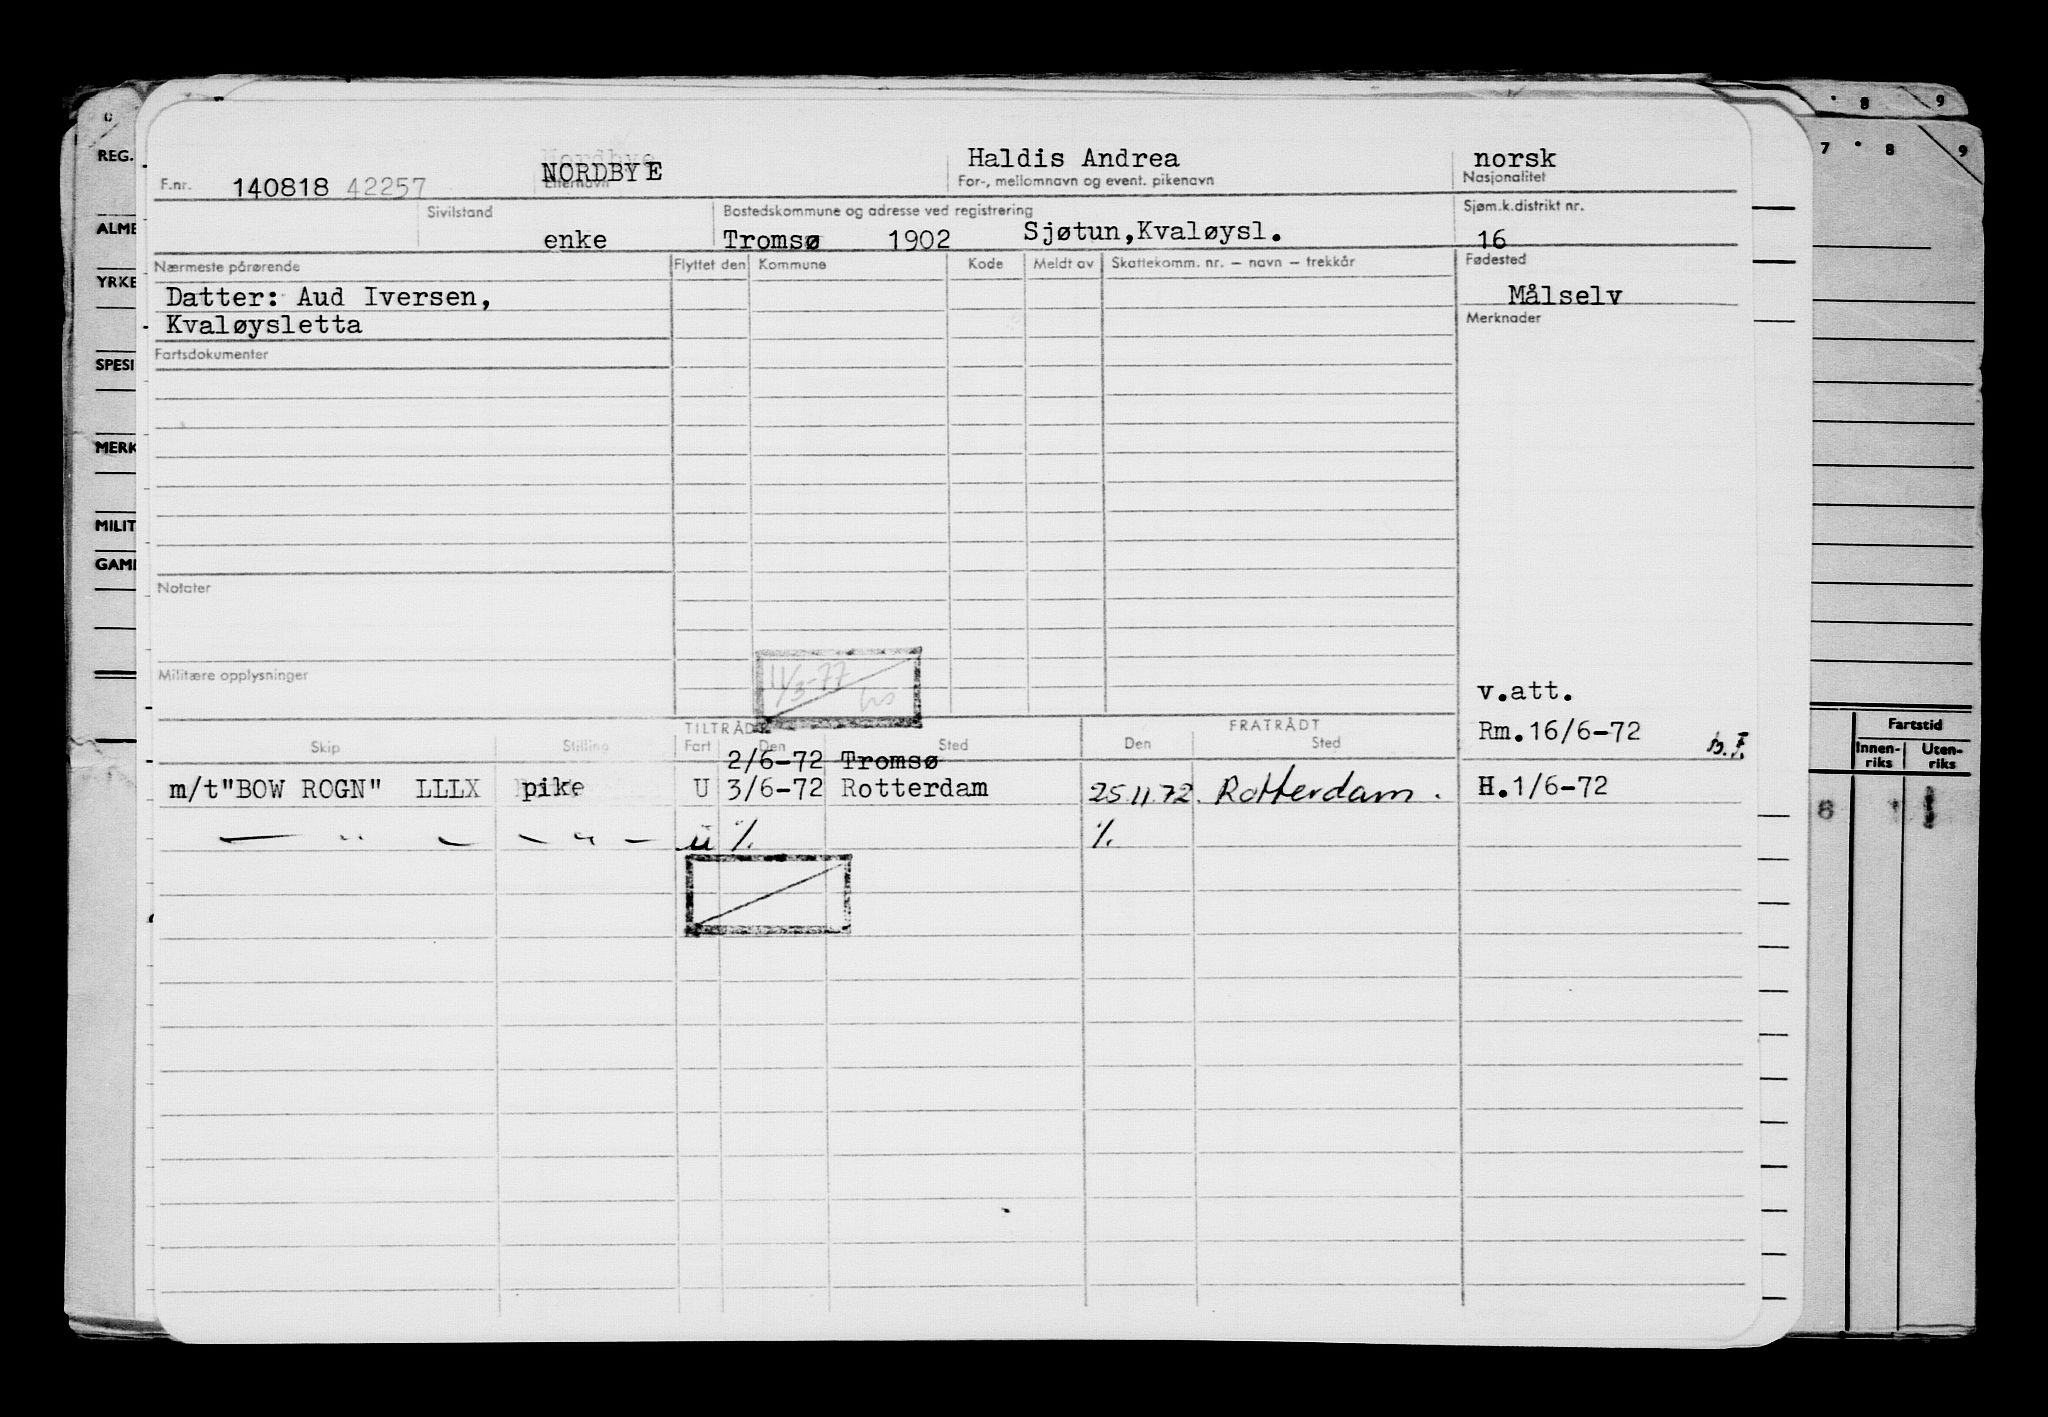 8 9
7 8 9
REG.
ALME
YRKE
SPESI
MERK
MILIT
GAM
F.nr. 140818 42257 NORDBYE Etternavn Haldis Andrea For-, mellomnavn og event. pikenavn norsk Nasjonalitet
Sivilstand enke Bostedskommune og adresse ved registrering Tromsø 1902 Sjøtun,Kvaløysl. Sjøm.k.distrikt nr. 16
Nærmeste pårørende Flyttet den Kommune Kode Meldt av Skattekomm. nr. – navn – trekkår Fødested
Datter: Aud Iversen, Målselv
Kvaløysletta Merknader
Fartsdokumenter
Notater
Militære opplysninger 11/3-77
v.att.
TILTRÅDT FRATRÅDT Rm.16/6-72
Skip Stilling Fart Den Sted Den Sted
2/6-72 Tromsø
m/t"BOW ROGN" LLLX pike U 3/6-72 Rotterdam 25.11.72. Rotterdam. H.1/6-72
— " — — " — u %. %.
Fartstid
Innen-riks Uten-riks
8 1